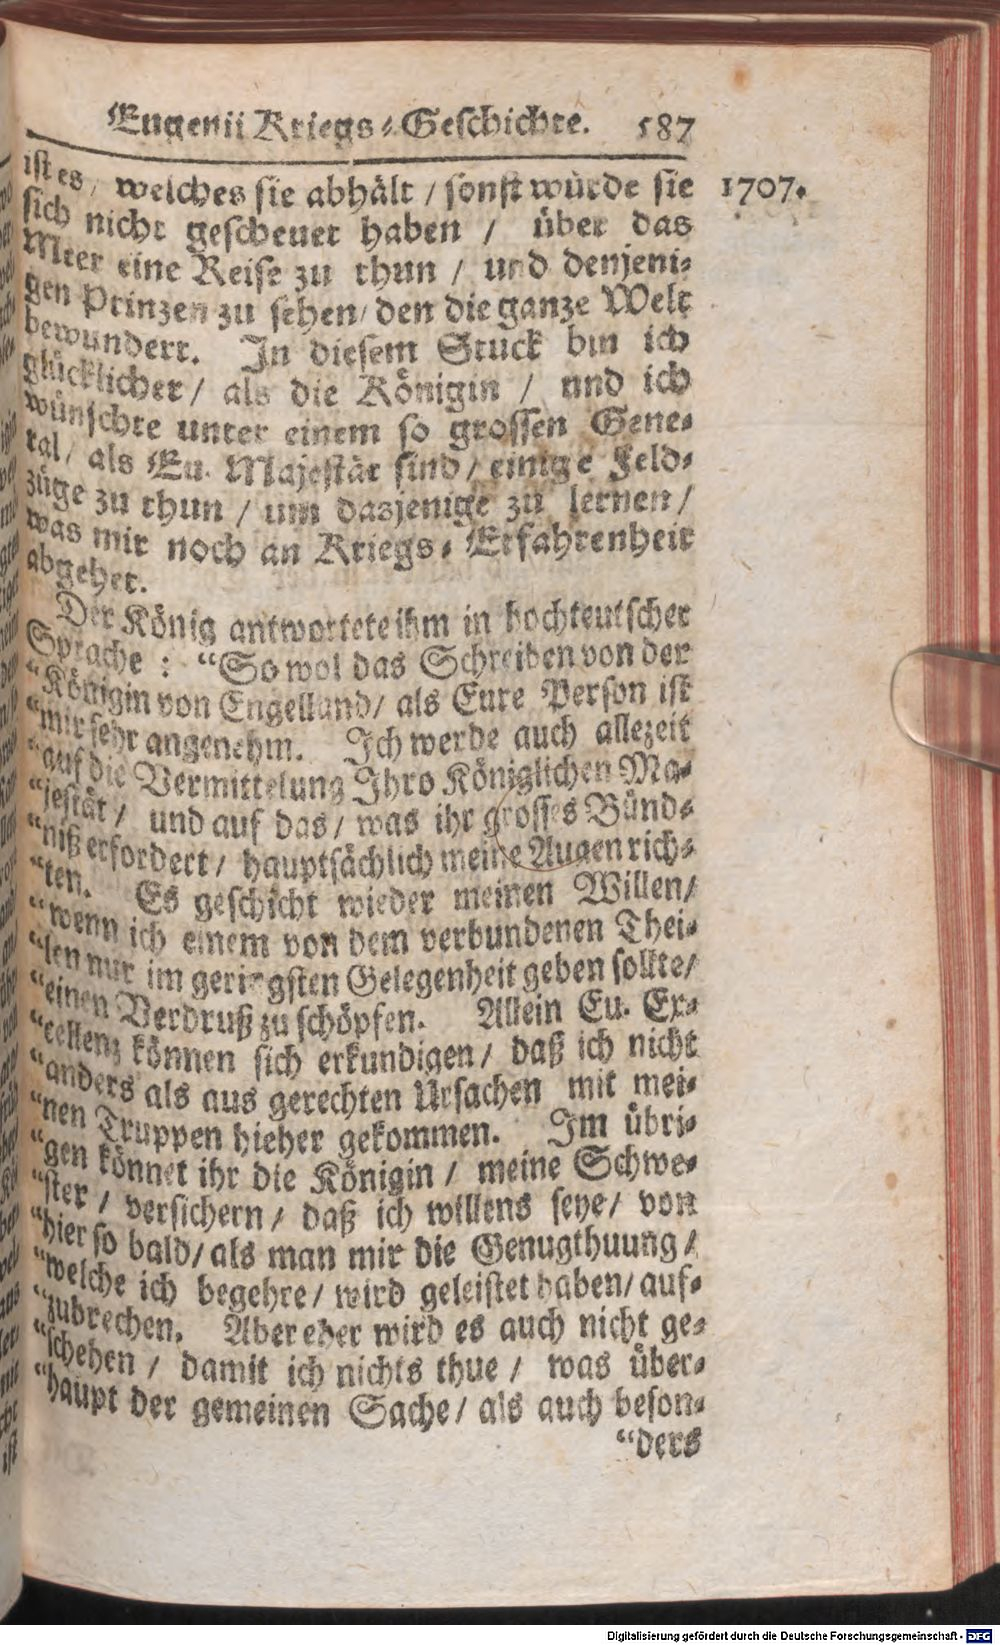 Eugenii Kriegs-Geschichte. 587
ist es / welches sie abhält / sonst würde sie 1707.
sich nicht gescheuet haben / über das
Meer eine Reise zu thun / und denjeni-
gen Prinzen zu sehen / den die ganze Welt
bewundert. In diesem Stuck bin ich
glücklicher / als die Königin / nnd ich
wünschte unter einem so grossen Gene-
ral / als Eu. Majestät sind / einige Feld-
züge zu thun / um dasjenige zu lernen /
was mir noch an Kriegs-Erfahrenheit
abgehet.
Der König antwortete ihm in hochteutscher
Sprache : “So wol das Schreiben von der
“Königin von Engelland / als Eure Person ist
“mir sehr angenehm. Ich werde auch allezeit
“auf die Vermittelung Ihro Königlichen Ma-
“jestät / und auf das / was ihr grosses Bünd-
“niß erfordert / hauptsächlich meine Augen rich-
“ten. Es geschicht wieder meinen Willen /
“wenn ich einem von dem verbundenen Thei-
“len nur im geringsten Gelegenheit geben sollte /
“einen Verdruß zu schöpfen. Allein Eu. Ex-
“cellenz können sich erkundigen / daß ich nicht
“anders als aus gerechten Ursachen mit mei-
“nen Truppen hieher gekommen. Im übri-
“gen könnet ihr die Königin / meine Schwe-
“ster / versichern / daß ich willens seye / von
“hier so bald / als man mir die Genugthuung /
“welche ich begehre / wird geleistet haben / auf-
“zubrechen. Aber eher wird es auch nicht ge-
“schehen / damit ich nichts thue / was über-
“haupt der gemeinen Sache / als auch beson-
“ders
Digitalisierung gefördert durch die Deutsche Forschungsgemeinschaft - DFG